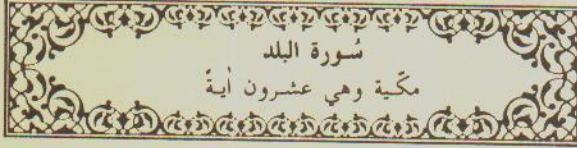 سُورة البلد
مكّية وهي عشرون اٰيةً